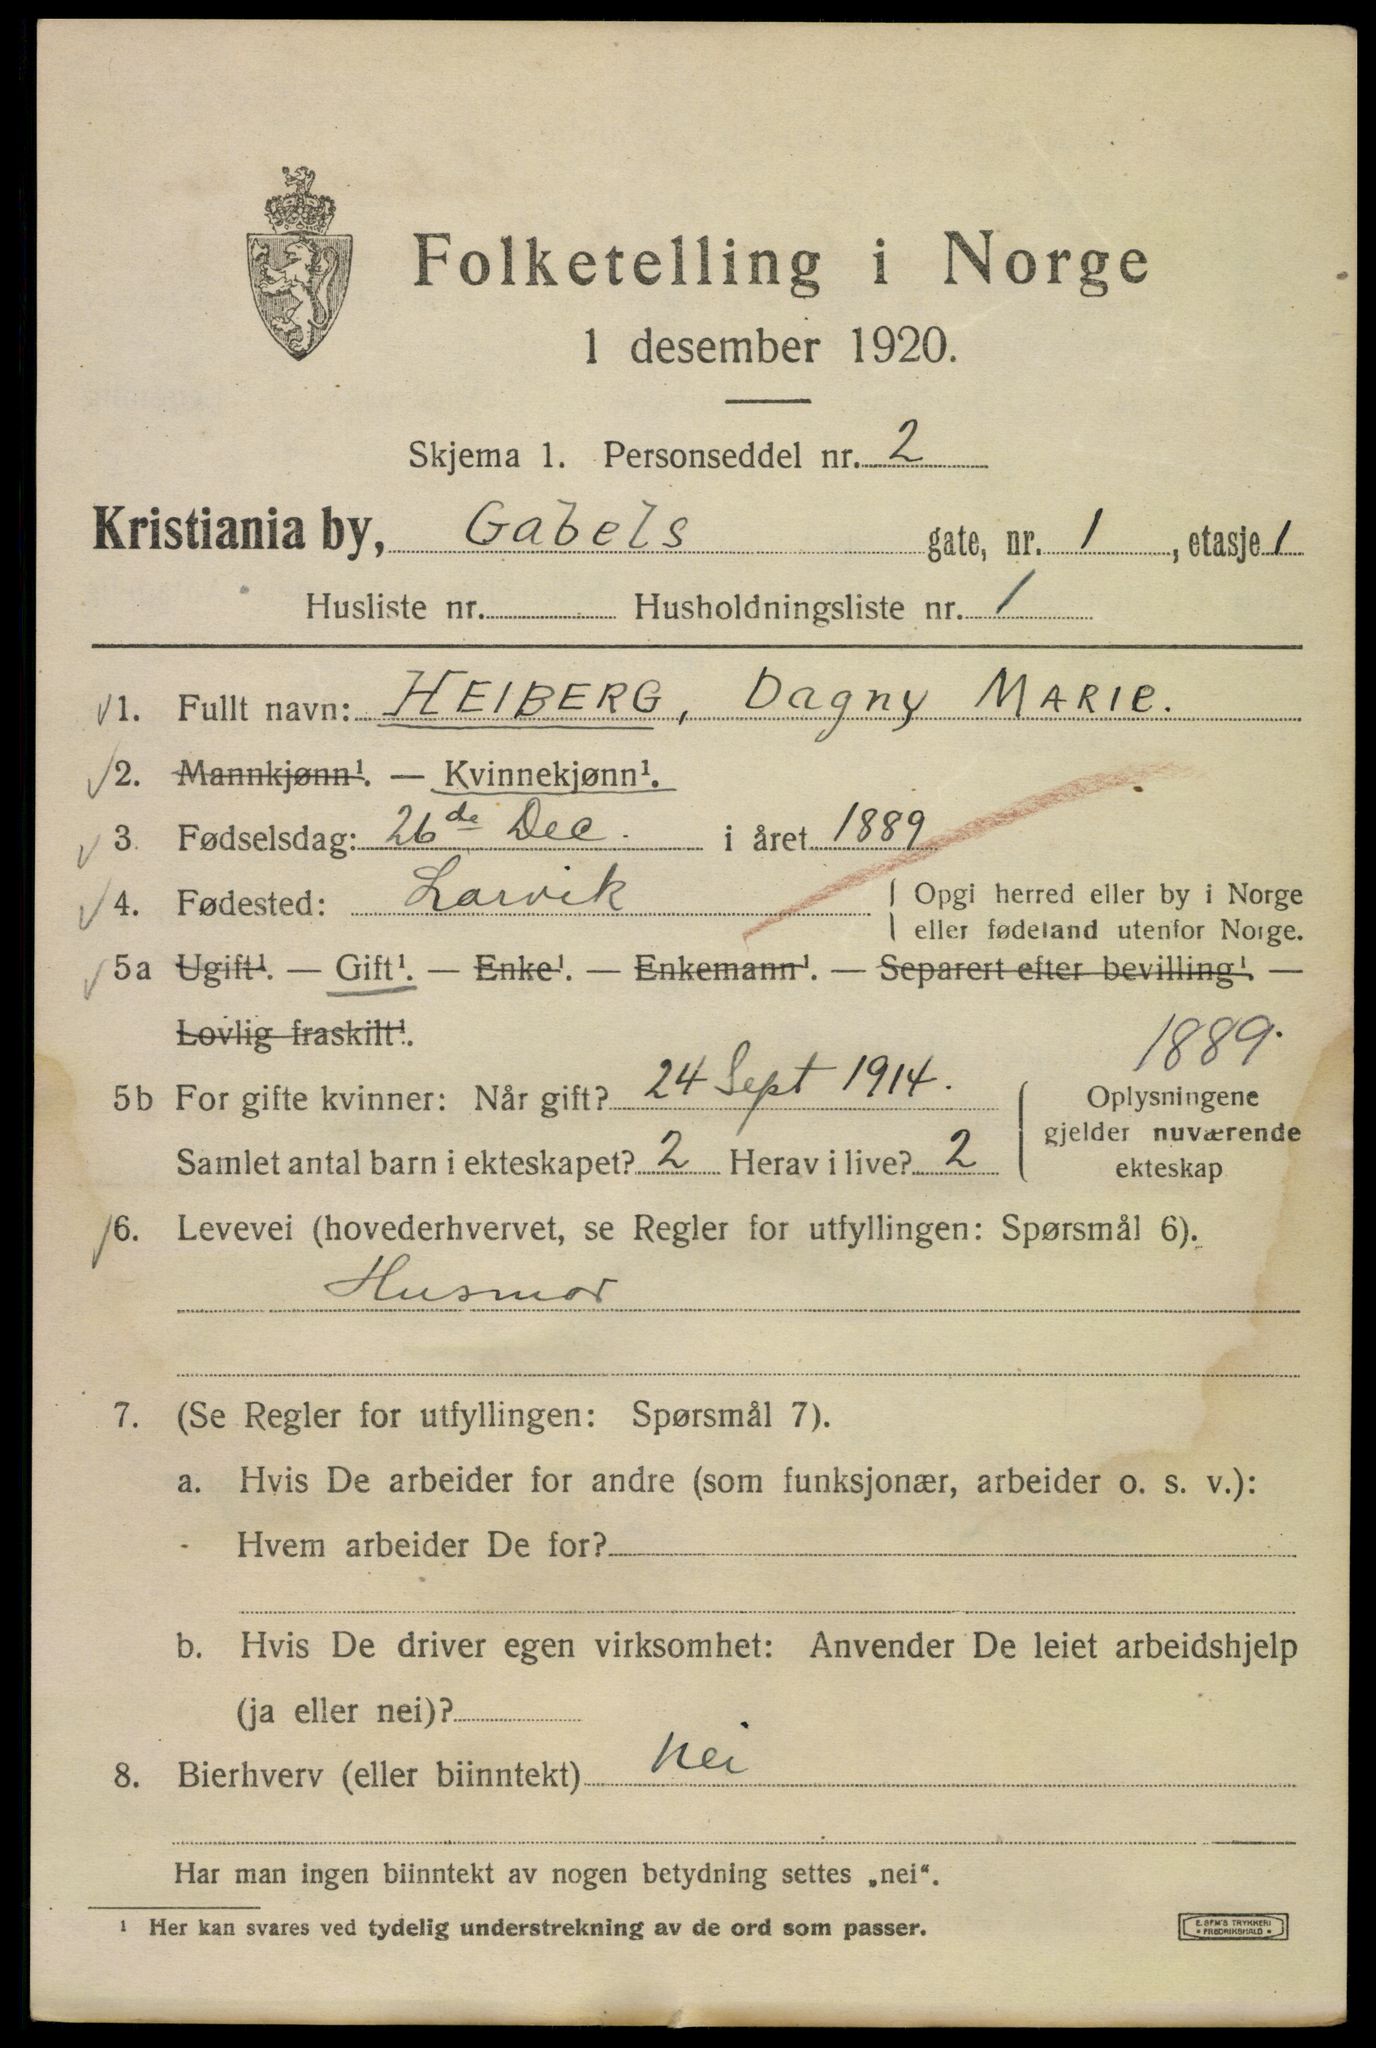 Folketelling i Norge
1 desember 1920.
Skjema 1. Personseddel nr. 2
Kristiania by, Gabels gate, nr. 1, etasje 1
Husliste nr. Husholdningsliste nr. 1
1. Fullt navn: HEIBERG, Dagny MARIE.
2. Mannkjønn¹. — Kvinnekjønn¹.
3 Fødselsdag: 26de Dec. i året 1889
4. Fødested: Larvik Opgi herred eller by i Norge
eller fødeland utenfor Norge.
5a Ugift¹. — Gift¹. — Enke¹. — Enkemann¹. — Separert efter bevilling¹. —
Lovlig fraskilt¹.
1889.
5b For gifte kvinner: Når gift? 24 Sept 1914. Oplysningene
gjelder nuværende
Samlet antal barn i ekteskapet? 2 Herav i live? 2
ekteskap
6. Levevei (hovederhvervet, se Regler for utfyllingen: Spørsmål 6).
Husmor
7. (Se Regler for utfyllingen: Spørsmål 7).
a. Hvis De arbeider for andre (som funksjonær, arbeider o. s. v.):
Hvem arbeider De for?
b. Hvis De driver egen virksomhet: Anvender De leiet arbeidshjelp
(ja eller nei)?
8. Bierhverv (eller biinntekt) Nei
Har man ingen biinntekt av nogen betydning settes „nei“.
¹ Her kan svares ved tydelig understrekning av de ord som passer.
E. SEM'S TRYKKERI
* FREDRIKSHALD *